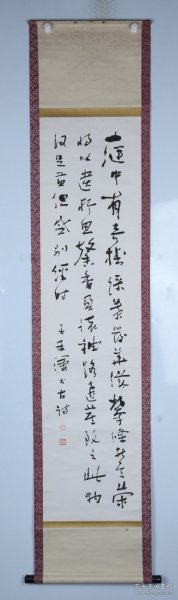 庭中有奇樹綠葉發華滋攀條折其榮
將以遺所思馨香盈懷袖路遠莫致之此物
何足貴但感別經時
古詩